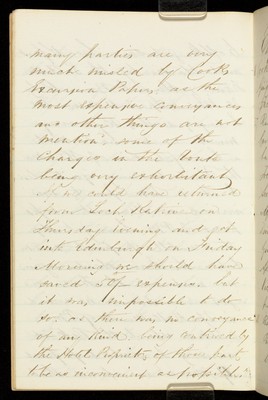 many parties are very
much misled by Cooks
Excursion Papers, as the
most expensive conveyances
and other things are not
mention'd, some of the
Charges in the boats
being very exhorbitant
If we could have returned
from Loch Katrine on
Thursday evening and got
into Edinburgh on Friday
Morning we should have
saved expenses, but
it was impossible to do
so, as there was no conveyance
of any kind, being contrived by
the Hotel Proprietors of those parts
to be as inconvenient as possible